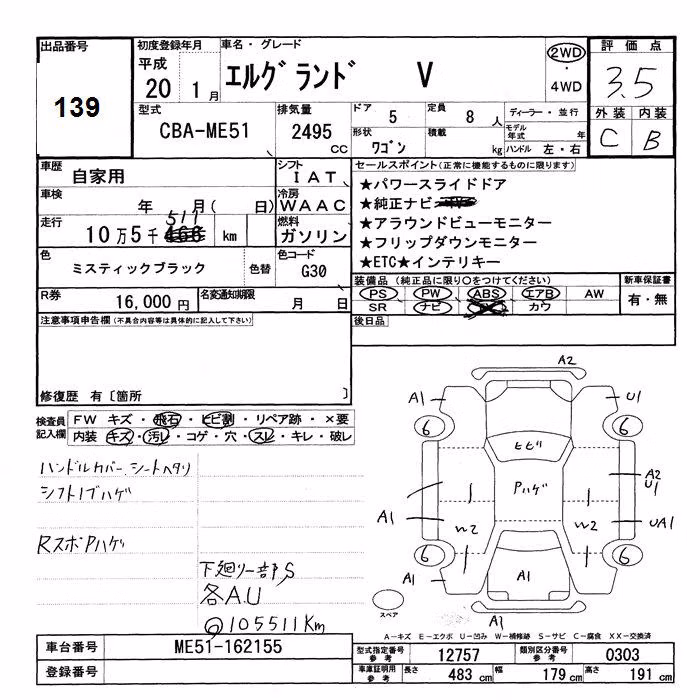 出品番号 139
初度登録年月 平成 20 1月
車名・グレード エルグランド V
2WD ・ 4WD
評価点 3.5
外装 C 内装 B
型式 CBA-ME51
排気量 2495 cc
ドア 5 定員 8人
形状 ワゴン 積載 kg
ディーラー・並行
モデル年式 年
ハンドル 左・右
車歴 自家用
シフト IAT
車検 年 月( 日)
冷房 WAAC
走行 10万5千511 km
燃料 ガソリン
色 ミスティックブラック 色替
色コード G30
R券 16,000円 名変通知期限 月 日
セールスポイント(正常に機能するものに限ります)
★パワースライドドア
★純正ナビ
★アラウンドビューモニター
★フリップダウンモニター
★ETC★インテリキー
装備品(純正品に限り〇をつけてください)
PS PW ABS エアB AW
SR ナビ カワ
新車保証書 有・無
後日品
注意事項申告欄(不具合内容等は具体的に記入して下さい)
修復歴 有〔箇所 〕
検査員記入欄
FW キズ・飛石・ヒビ割・リペア跡・×要
内装 キズ・汚レ・コゲ・穴・スレ・キレ・破レ
ハンドルカバー、シートヘタリ
シフトノブハゲ
RスポPハゲ
下廻り一部S
各A.U
@105511Km
A2
A1 U1
6 6
ヒビリ
Pハゲ
A2
U1
A1
W2 W2
UA1
6 6
A1 A1 A1
スペア
A1
A-キズ E-エクボ U-凹み W-補修跡 S-サビ C-腐食 XX-交換済
車台番号 ME51-162155
登録番号
型式指定番号 参考 12757
類別区分番号 参考 0303
車庫証明用 参考 長さ 483cm 幅 179cm 高さ 191cm